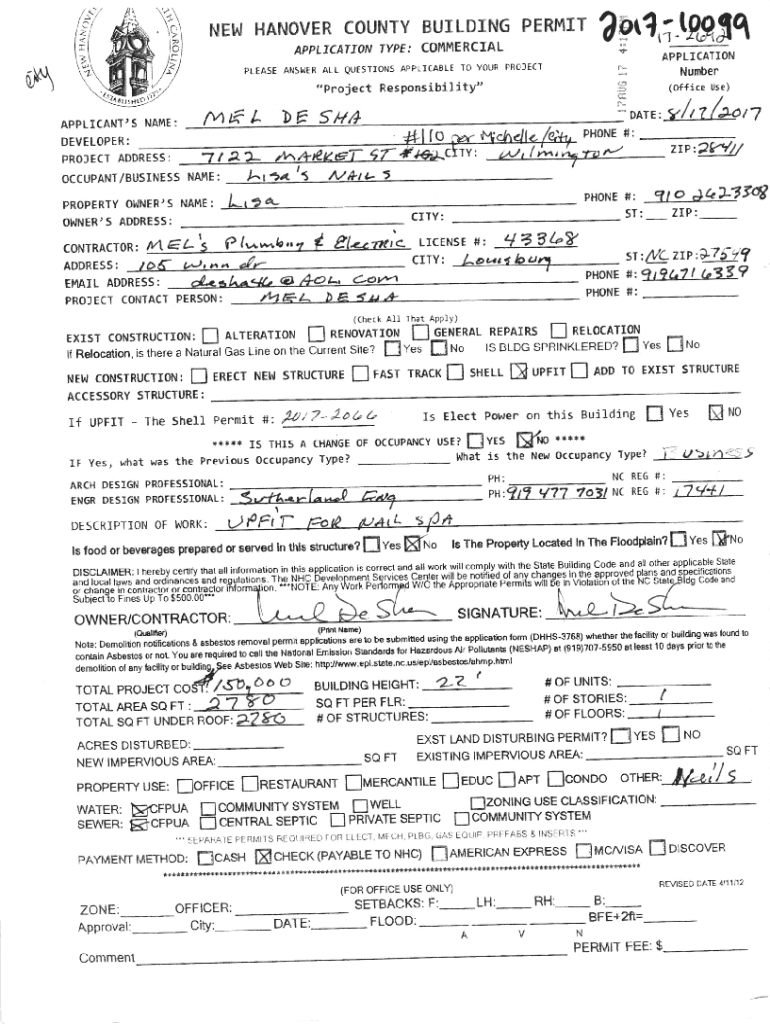 NEW HANOVER COUNTY BUILDING PERMIT 2017-10099
17-2692
APPLICATION TYPE: COMMERCIAL
APPLICATION
PLEASE ANSWER ALL QUESTIONS APPLICABLE TO YOUR PROJECT
Number
"Project Responsibility"
(Office Use)
NEW HANOVER
NORTH CAROLINA
ESTABLISHED
17AUG 17
City
APPLICANT'S NAME: MEL DE SHA DATE: 8/17/2017
DEVELOPER: #110 per Michelle/City PHONE #:
PROJECT ADDRESS: 7122 MARKET ST #102 CITY: Wilmington ZIP: 28411
OCCUPANT/BUSINESS NAME: Lisa's NAILS
PROPERTY OWNER'S NAME: Lisa PHONE #: 910 2623308
OWNER'S ADDRESS: CITY: ST: ZIP:
CONTRACTOR: MEL's Plumbing & Electric LICENSE #: 43368
ADDRESS: 105 Winn dr CITY: Louisburg ST: NC ZIP: 27549
EMAIL ADDRESS: deshask@AOL com PHONE #: 9196716339
PROJECT CONTACT PERSON: MEL DE SHA PHONE #:
(Check All That Apply)
EXIST CONSTRUCTION: ALTERATION RENOVATION GENERAL REPAIRS RELOCATION
If Relocation, is there a Natural Gas Line on the Current Site? Yes No IS BLDG SPRINKLERED? Yes No
NEW CONSTRUCTION: ERECT NEW STRUCTURE FAST TRACK SHELL X UPFIT ADD TO EXIST STRUCTURE
ACCESSORY STRUCTURE:
If UPFIT - The Shell Permit #: 2017-2066 Is Elect Power on this Building Yes X NO
***** IS THIS A CHANGE OF OCCUPANCY USE? YES X NO *****
IF Yes, what was the Previous Occupancy Type? What is the New Occupancy Type? Business
ARCH DESIGN PROFESSIONAL: PH: NC REG #:
ENGR DESIGN PROFESSIONAL: Sutherland Eng PH: 919 477 7031 NC REG #: 17441
DESCRIPTION OF WORK: UPFIT FOR NAIL SPA
Is food or beverages prepared or served in this structure? Yes X No Is The Property Located In The Floodplain? Yes X No
DISCLAIMER: I hereby certify that all information in this application is correct and all work will comply with the State Building Code and all other applicable State
and local laws and ordinances and regulations. The NHC Development Services Center will be notified of any changes in the approved plans and specifications
or change in contractor or contractor information. ***NOTE: Any Work Performed W/O the Appropriate Permits will be in Violation of the NC State Bldg Code and
Subject to Fines Up To $500.00***
OWNER/CONTRACTOR: Mel De Sha SIGNATURE: Mel De Sha
(Qualifier) (Print Name)
Note: Demolition notifications & asbestos removal permit applications are to be submitted using the application form (DHHS-3768) whether the facility or building was found to
contain Asbestos or not. You are required to call the National Emission Standards for Hazardous Air Pollutants (NESHAP) at (919)707-5950 at least 10 days prior to the
demolition of any facility or building. See Asbestos Web Site: http://www.epi.state.nc.us/epi/asbestos/ahmp.html
TOTAL PROJECT COST: $150,000 BUILDING HEIGHT: 22' # OF UNITS:
TOTAL AREA SQ FT : 2780 SQ FT PER FLR: # OF STORIES: 1
TOTAL SQ FT UNDER ROOF: 2780 # OF STRUCTURES: # OF FLOORS: 1
ACRES DISTURBED: EXST LAND DISTURBING PERMIT? YES NO
NEW IMPERVIOUS AREA: SQ FT EXISTING IMPERVIOUS AREA: SQ FT
PROPERTY USE: OFFICE RESTAURANT MERCANTILE EDUC APT CONDO OTHER: Nails
WATER: X CFPUA COMMUNITY SYSTEM WELL ZONING USE CLASSIFICATION:
SEWER: X CFPUA CENTRAL SEPTIC PRIVATE SEPTIC COMMUNITY SYSTEM
*** SEPARATE PERMITS REQUIRED FOR ELECT, MECH, PLBG, GAS EQUIP, PREFABS & INSERTS ***
PAYMENT METHOD: CASH X CHECK (PAYABLE TO NHC) AMERICAN EXPRESS MC/VISA DISCOVER
(FOR OFFICE USE ONLY) REVISED DATE 4/11/12
ZONE: OFFICER: SETBACKS: F: LH: RH: B:
Approval: City: DATE: FLOOD: BFE+2ft=
A V N
PERMIT FEE: $
Comment